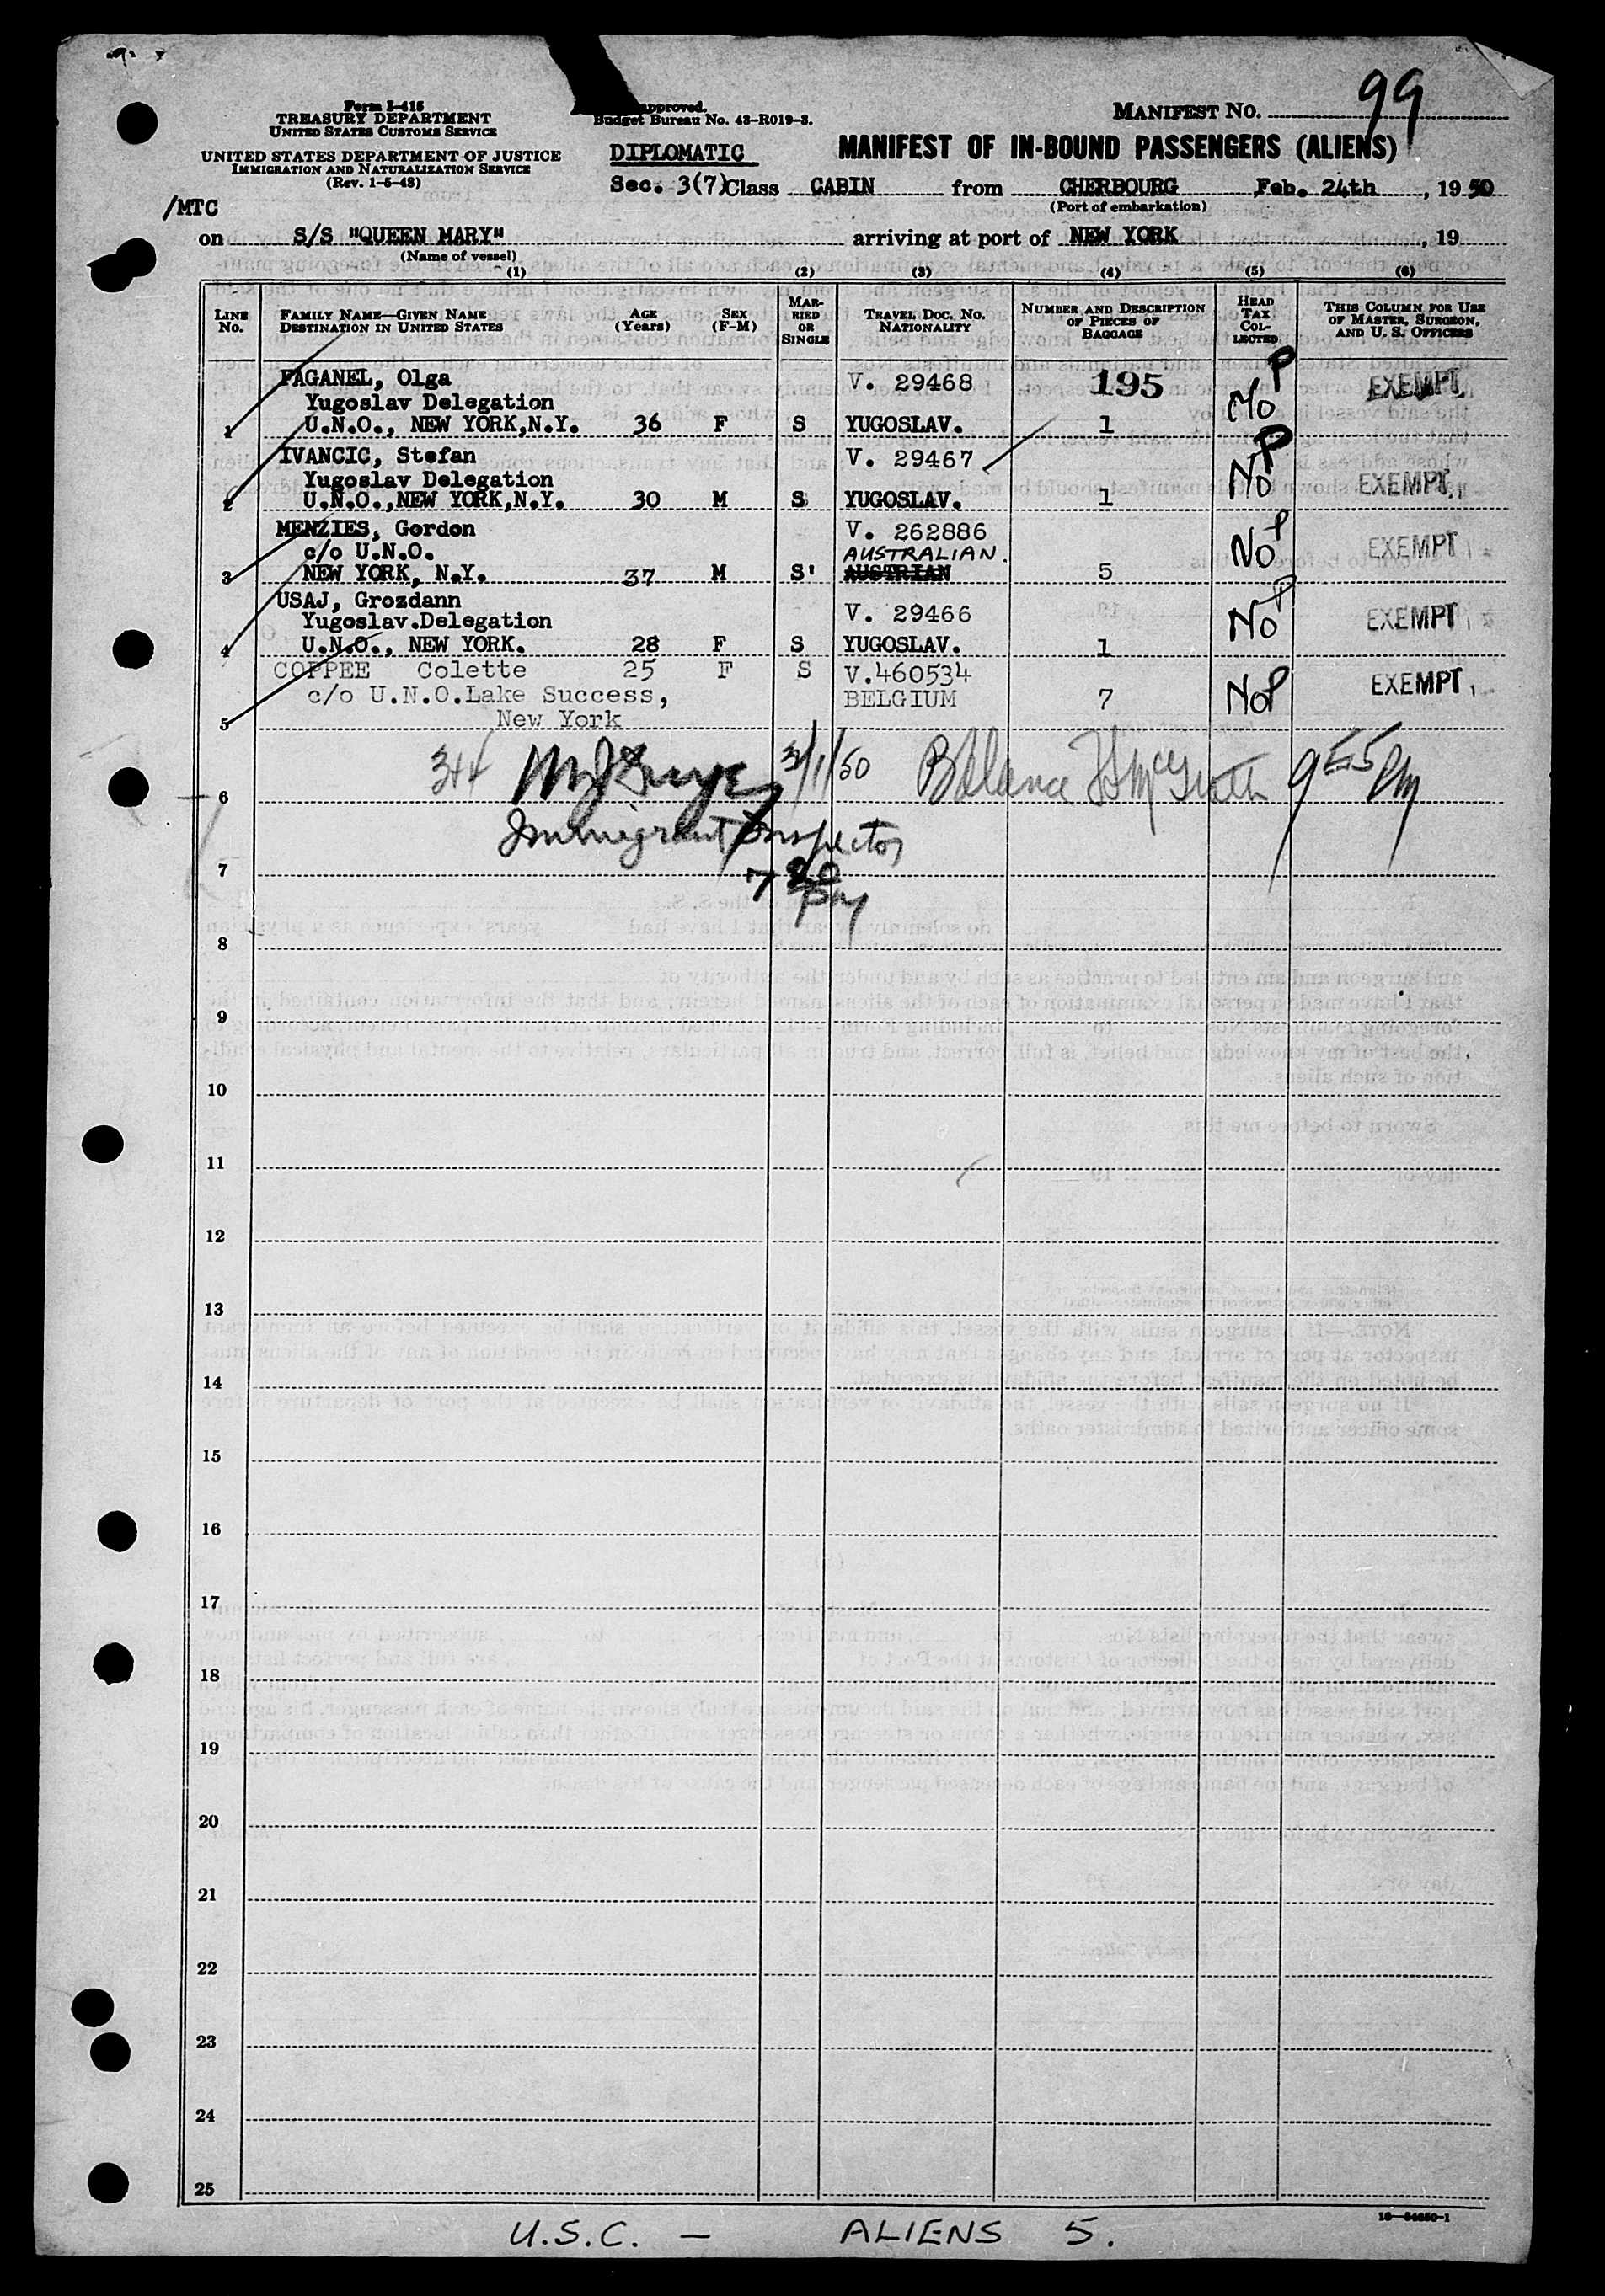 Form I-415
TREASURY DEPARTMENT
UNITED STATES CUSTOMS SERVICE
UNITED STATES DEPARTMENT OF JUSTICE
IMMIGRATION AND NATURALIZATION SERVICE
(Rev. 1-5-48)
approved.
Budget Bureau No. 43-R019-3.
MANIFEST NO. 99
DIPLOMATIC
MANIFEST OF IN-BOUND PASSENGERS (ALIENS)
Sec. 3(7) Class CABIN from CHERBOURG Feb. 24th, 1950
(Port of embarkation)
/MTC
on S/S "QUEEN MARY" arriving at port of NEW YORK, 19
(Name of vessel)
(1) (2) (3) (4) (5) (6)
LINE No. FAMILY NAME—GIVEN NAME DESTINATION IN UNITED STATES AGE (Years) SEX (F-M) MARRIED OR SINGLE TRAVEL DOC. NO. NATIONALITY NUMBER AND DESCRIPTION OF PIECES OF BAGGAGE HEAD TAX COLLECTED THIS COLUMN FOR USE OF MASTER, SURGEON, AND U. S. OFFICERS
PAGANEL, Olga V. 29468 195 No P EXEMPT
Yugoslav Delegation
1 U.N.O., NEW YORK,N.Y. 36 F S YUGOSLAV. 1
IVANCIC, Stefan V. 29467 No P EXEMPT
Yugoslav Delegation
2 U.N.O.,NEW YORK,N.Y. 30 M S YUGOSLAV. 1
MENZIES, Gordon V. 262886 No P EXEMPT
c/o U.N.O. AUSTRALIAN.
3 NEW YORK, N.Y. 37 M S' AUSTRIAN 5
USAJ, Grozdann V. 29466 No P EXEMPT
Yugoslav.Delegation
4 U.N.O., NEW YORK. 28 F S YUGOSLAV. 1
COPPEE Colette 25 F S V.460534 No P EXEMPT
c/o U.N.O.Lake Success, BELGIUM 7
5 New York
344 3/1/50 Balance 9 55 PM
6
Immigrant Inspector
7
7 20 PM
8
9
10
11
12
13
14
15
16
17
18
19
20
21
22
23
24
25
16—54650-1
U.S.C. — ALIENS 5.